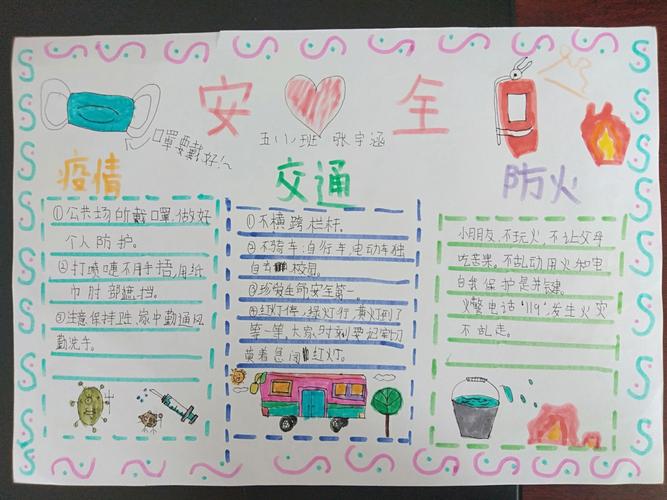 安 全
口罩要戴好!~
五(1)班 张宇涵
疫情
①公共场所戴口罩,做好
个人防护。
②打喷嚏不用手捂,用纸
巾肘部遮挡。
③注意保持卫生,家中勤通风
勤洗手。
交通
①不横跨栏杆。
②不骑车:自行车,电动车独
自 校园。
③珍爱生命安全第一。
④红灯停,绿灯行,黄灯到了
等一等。大家时刻要记牢切
莫着急闯红灯。
防火
小朋友,不玩火,不让父母
吃苦果。不乱动用火和电
自我保护是关键。
火警电话"119",发生火灾
不乱走。